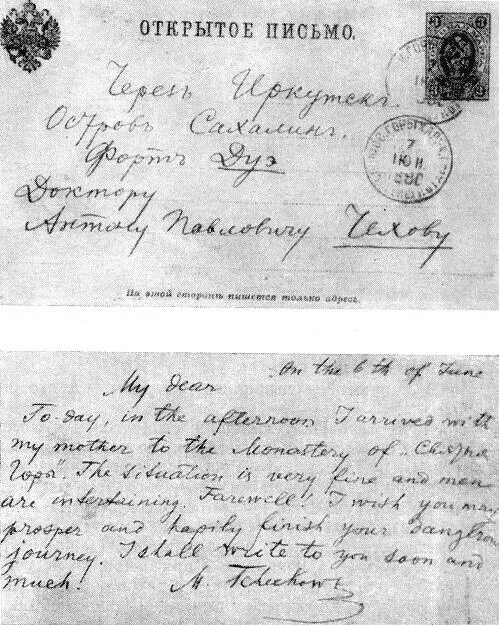 ОТКРЫТОЕ ПИСЬМО.
Черезъ Иркутскъ.
Островъ Сахалинъ.
Фортъ Дуэ
Доктору
Антону Павловичу Чехову
7
ІЮН
На этой сторонѣ пишется только адресъ.
On the 6th of June
My dear
To-day, in the afternoon I arrived with
my mother to the Monastery of „Святыя
Горы". The situation is very fine and men
are intertaining. Farewell! I wish you may
prosper and hapily finish your dangerous
journey. I shall write to you soon and
much! M. Tchekow